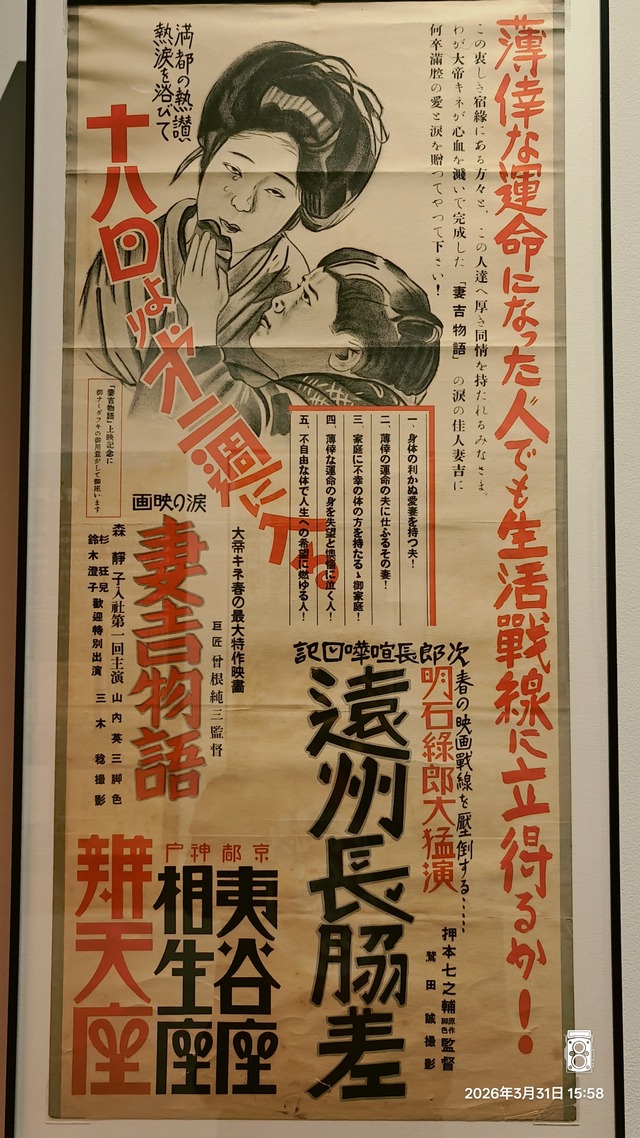 薄倖な運命になった人でも生活戰線に立得るか！
この哀しき宿緣にある方々と、この人達へ厚き同情を持たれるみなさま。
わが大帝キネが心血を濺いで完成した「妻吉物語」の淚の佳人妻吉に
何卒滿腔の愛と淚を贈つてやつて下さい！
満都の熱讃
熱淚を浴びて
十八日より㐧二週に入る
一、身体の利かぬ愛妻を持つ夫！
二、薄倖の運命の夫に仕ふるその妻！
三、家庭に不幸の体の方を持たるゝ御家庭！
四、薄倖な運命の身を失望と懊惱に泣く人！
五、不自由な体で人生への希望に燃ゆる人！
「妻吉物語」上映記念に
御ナミダフキの御用意がして御座います
淚の映画
大帝キネ春の最大特作映畫
巨匠 曾根純三監督
妻吉物語
森靜子入社第一回主演 山内英三脚色
杉狂兒
鈴木澄子
歡迎特別出演 三木稔撮影
次郎長喧嘩日記
春の映画戰線を壓倒する……
明石綠郎大猛演
遠州長脇差
押本七之輔 原作脚色 監督
鷲田誠撮影
京都 神戸
夷谷座
相生座
辨天座
2026年3月31日 15:58